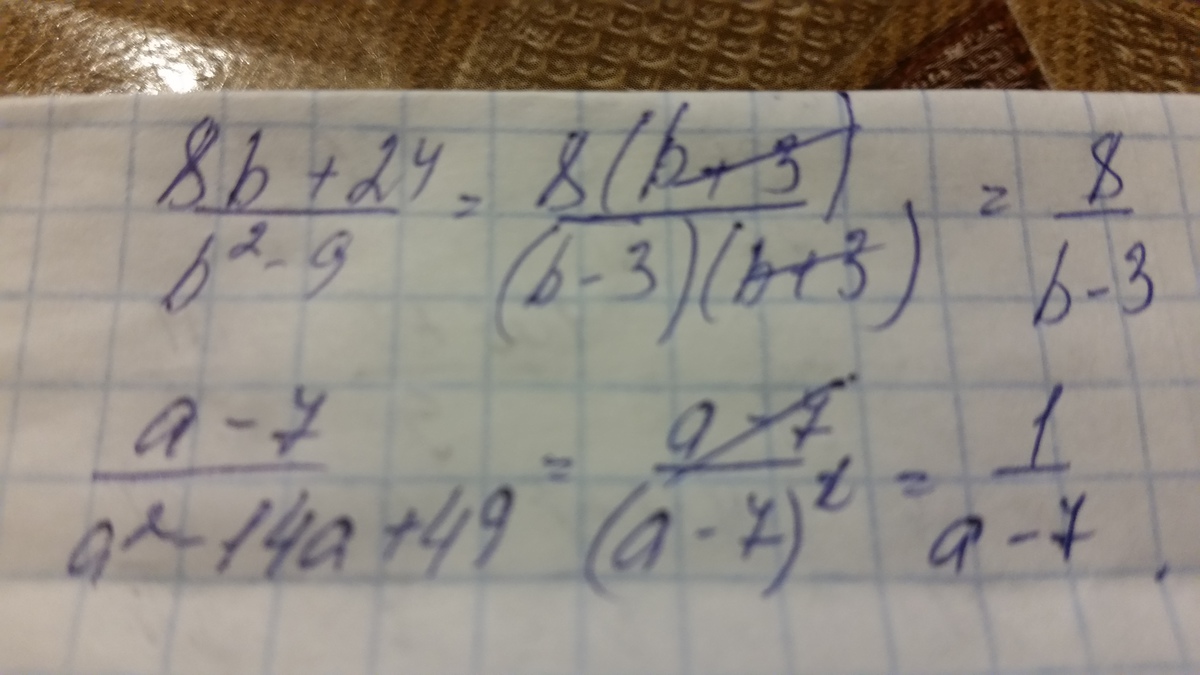 (8b + 24)/(b² - 9) = (8(b + 3))/((b - 3)(b + 3)) = 8/(b - 3)
(a - 7)/(a² - 14a + 49) = (a - 7)/((a - 7)²) = 1/(a - 7).